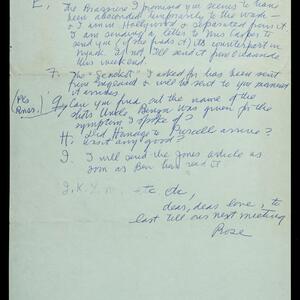 E, The Brassiere I promised you seems to have
been absconded temporarily to the wash
& I am in Hollywood & separated from it.
I am sending a letter to Mrs Casper to
send you (if she finds it) its counterpart in
Nyack. If not I'll send it from Claunde
this weekend.
F. The "Seaskell" I asked for has been sent
from England & will be sent to you moment
it arrives.
(Pls
Answ.) G, Can you find out the name of the
diets Uncle Benya was given for the
symptom I spoke of?
H. Did Homage to Purcell arrive?
Is it any good?
I. I will send the Jones article as
soon as Ben has read it
J. K. L. M. — etc etc,
dear, dear love, to
last till our next meeting
Rose